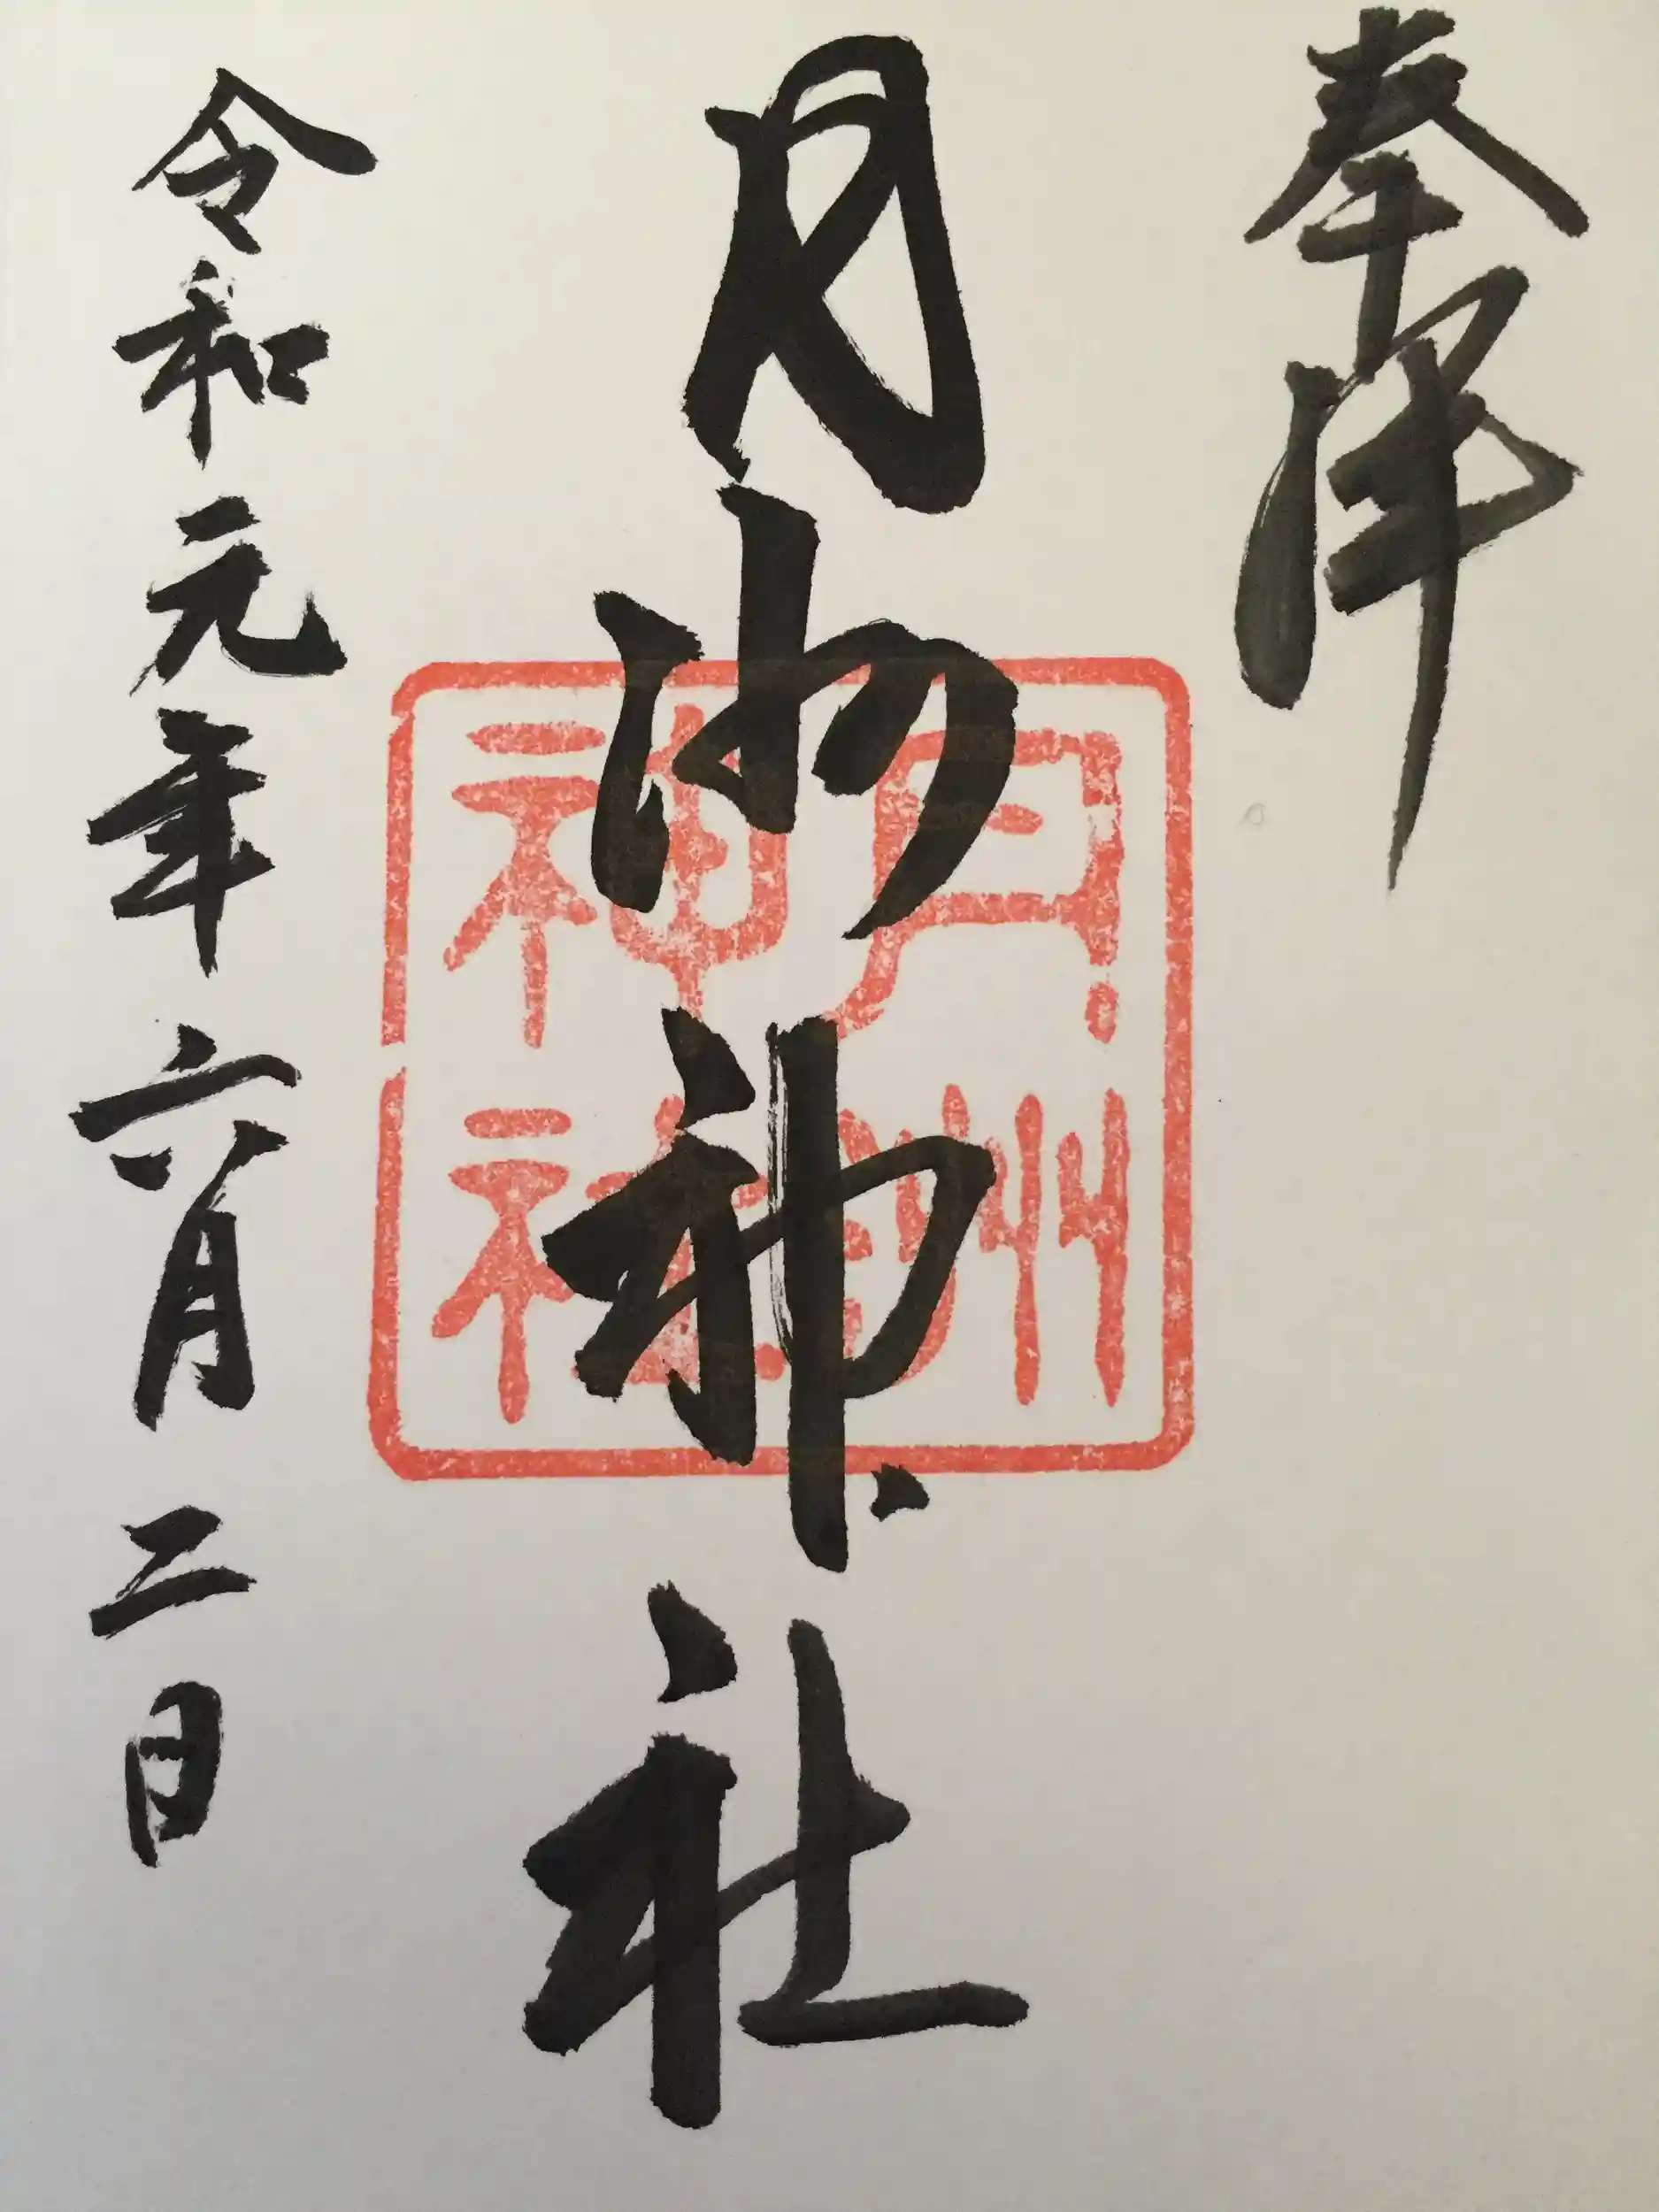 奉拝
月洲神社
月洲
神社
令和元年六月二日